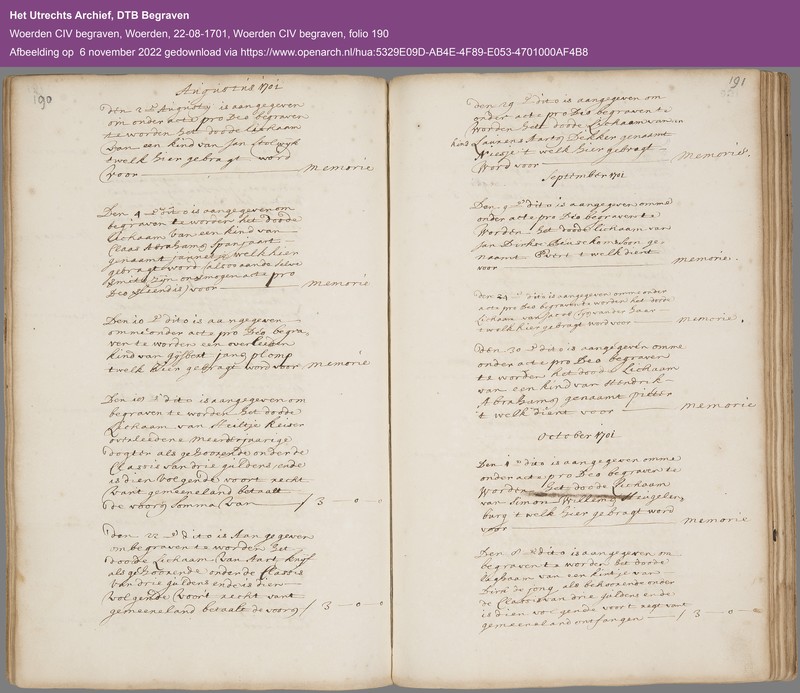 Het Utrechts Archief, DTB Begraven
Woerden CIV begraven, Woerden, 22-08-1701, Woerden CIV begraven, folio 190
Afbeelding op 6 november 2022 gedownload via https://www.openarch.nl/hua:5329E09D-AB4E-4F89-E053-4701000AF4B8
190
Augustus 1701
Den 2 Augusty is aangegeven
om onder acte pro Deo begraven
te worden het doode lichaam
van een kind van Jan Stolwijk
t welk hier gebragt word
voor memorie
Den 4 dito is aangegeven om
begraven te worden het doode
Lichaam van een kind van
Claas Abrahams Spanjaart
genaamt Jannetje welk hier
gebragt word
pro
Deo voor memorie
Den 10 dito is aangegeven
omme onder acte pro Deo begra
ven te worden een overleeden
kind van Gijsbert Jans plomp
t welk hier gebragt word voor memorie
Den dito is aangegeven om
begraven te worden het doode
Lichaam van Keiser
overleedene meerderjaarige
dogter als gehoorende onder de
Classis van drie guldens ende
is dien volgende voort recht
vant gemeeneland betaalt
de voorn somma van / 3 - 0 - 0
Den 22 dito is Aangegeven
om begraven te worden het
doode Lichaam van Aart Knijf
als gehoorende onder de Classis
van drie guldens ende is dien
volgende voort recht vant
gemeeneland betaalt de voorn / 3 - 0 - 0
191
Den 29 dito is aangegeven om
onder acte pro Deo begraven te
worden het doode Lichaam van een
kind Laurens Aarts Dekker genaamt
t welk hier gebragt
word voor memorie.
September 1701
Den 9 dito is aangegeven omme
onder acte pro Deo begraven te
worden het doode Lichaam van
Jan Dirkse soon ge
naamt Evert t welk dient
voor memorie.
Den 24 dito is aangegeven omme onder
acte pro Deo begraven te worden het doode
Lichaam van Jacob
t welk hier gebragt word voor memorie.
Den 30 dito is aangegeven omme
onder acte pro Deo begraven
te worden het doode Lichaam
van een kind van Hendrik
Abrahams genaamt pieter
't welk dient voor memorie
October 1701
Den dito is aangegeven omme
onder acte pro Deo begraven te
worden het doode Lichaam
van Simon Willems Heugelen
burg t welk hier gebragt word
voor memorie
Den dito is aangegeven om
begraven te worden het doode
van een kintje van
Dirk de Jong als behoorende onder
de Classis van drie guldens ende
is dien volgende voort regt vant
gemeeneland ontfangen / 3 - 0 -